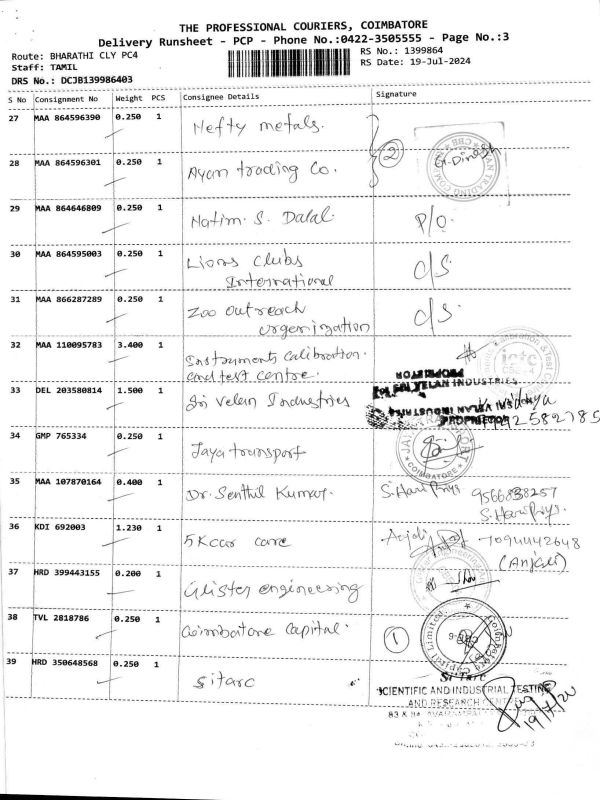 THE PROFESSIONAL COURIERS, COIMBATORE
Delivery Runsheet - PCP - Phone No.:0422-3505555 - Page No.:3
Route: BHARATHI CLY PC4
RS No.: 1399864
Staff: TAMIL
RS Date: 19-Jul-2024
DRS No.: DCJB139986403
S No Consignment No Weight PCS Consignee Details Signature
27 MAA 864596390 0.250 1 Nefty metals.
2
28 MAA 864596301 0.250 1 Ayan trading Co. G. Dinesh
29 MAA 864646809 0.250 1 Natim. S. Dalal. P/O.
30 MAA 864595003 0.250 1 Lions Clubs International C/S.
31 MAA 866287289 0.250 1 Zoo outreach orgenization C/S.
32 MAA 110095783 3.400 1 Instruments Calibration. and test centre.
PROPRIETOR
33 DEL 203580814 1.500 1 Sri Velan Industries
VELAN INDUSTRIES
PROPRIETOR
34 GMP 765334 0.250 1 Jaya transport
COIMBATORE
35 MAA 107870164 0.400 1 Dr. Senthil Kumar. S. Hari Priya 9566838257
S. Hari Priya.
36 KDI 692003 1.230 1 5K car care Anjali 7094442648
(Anjali)
37 HRD 399443155 0.200 1 Glister engineering
38 TVL 2818786 0.250 1 Coimbatore Capital. 1
39 HRD 350648568 0.250 1 Sitarc
Si'Tarc
SCIENTIFIC AND INDUSTRIAL TESTING
AND RESEARCH CENTRE
19/7/20